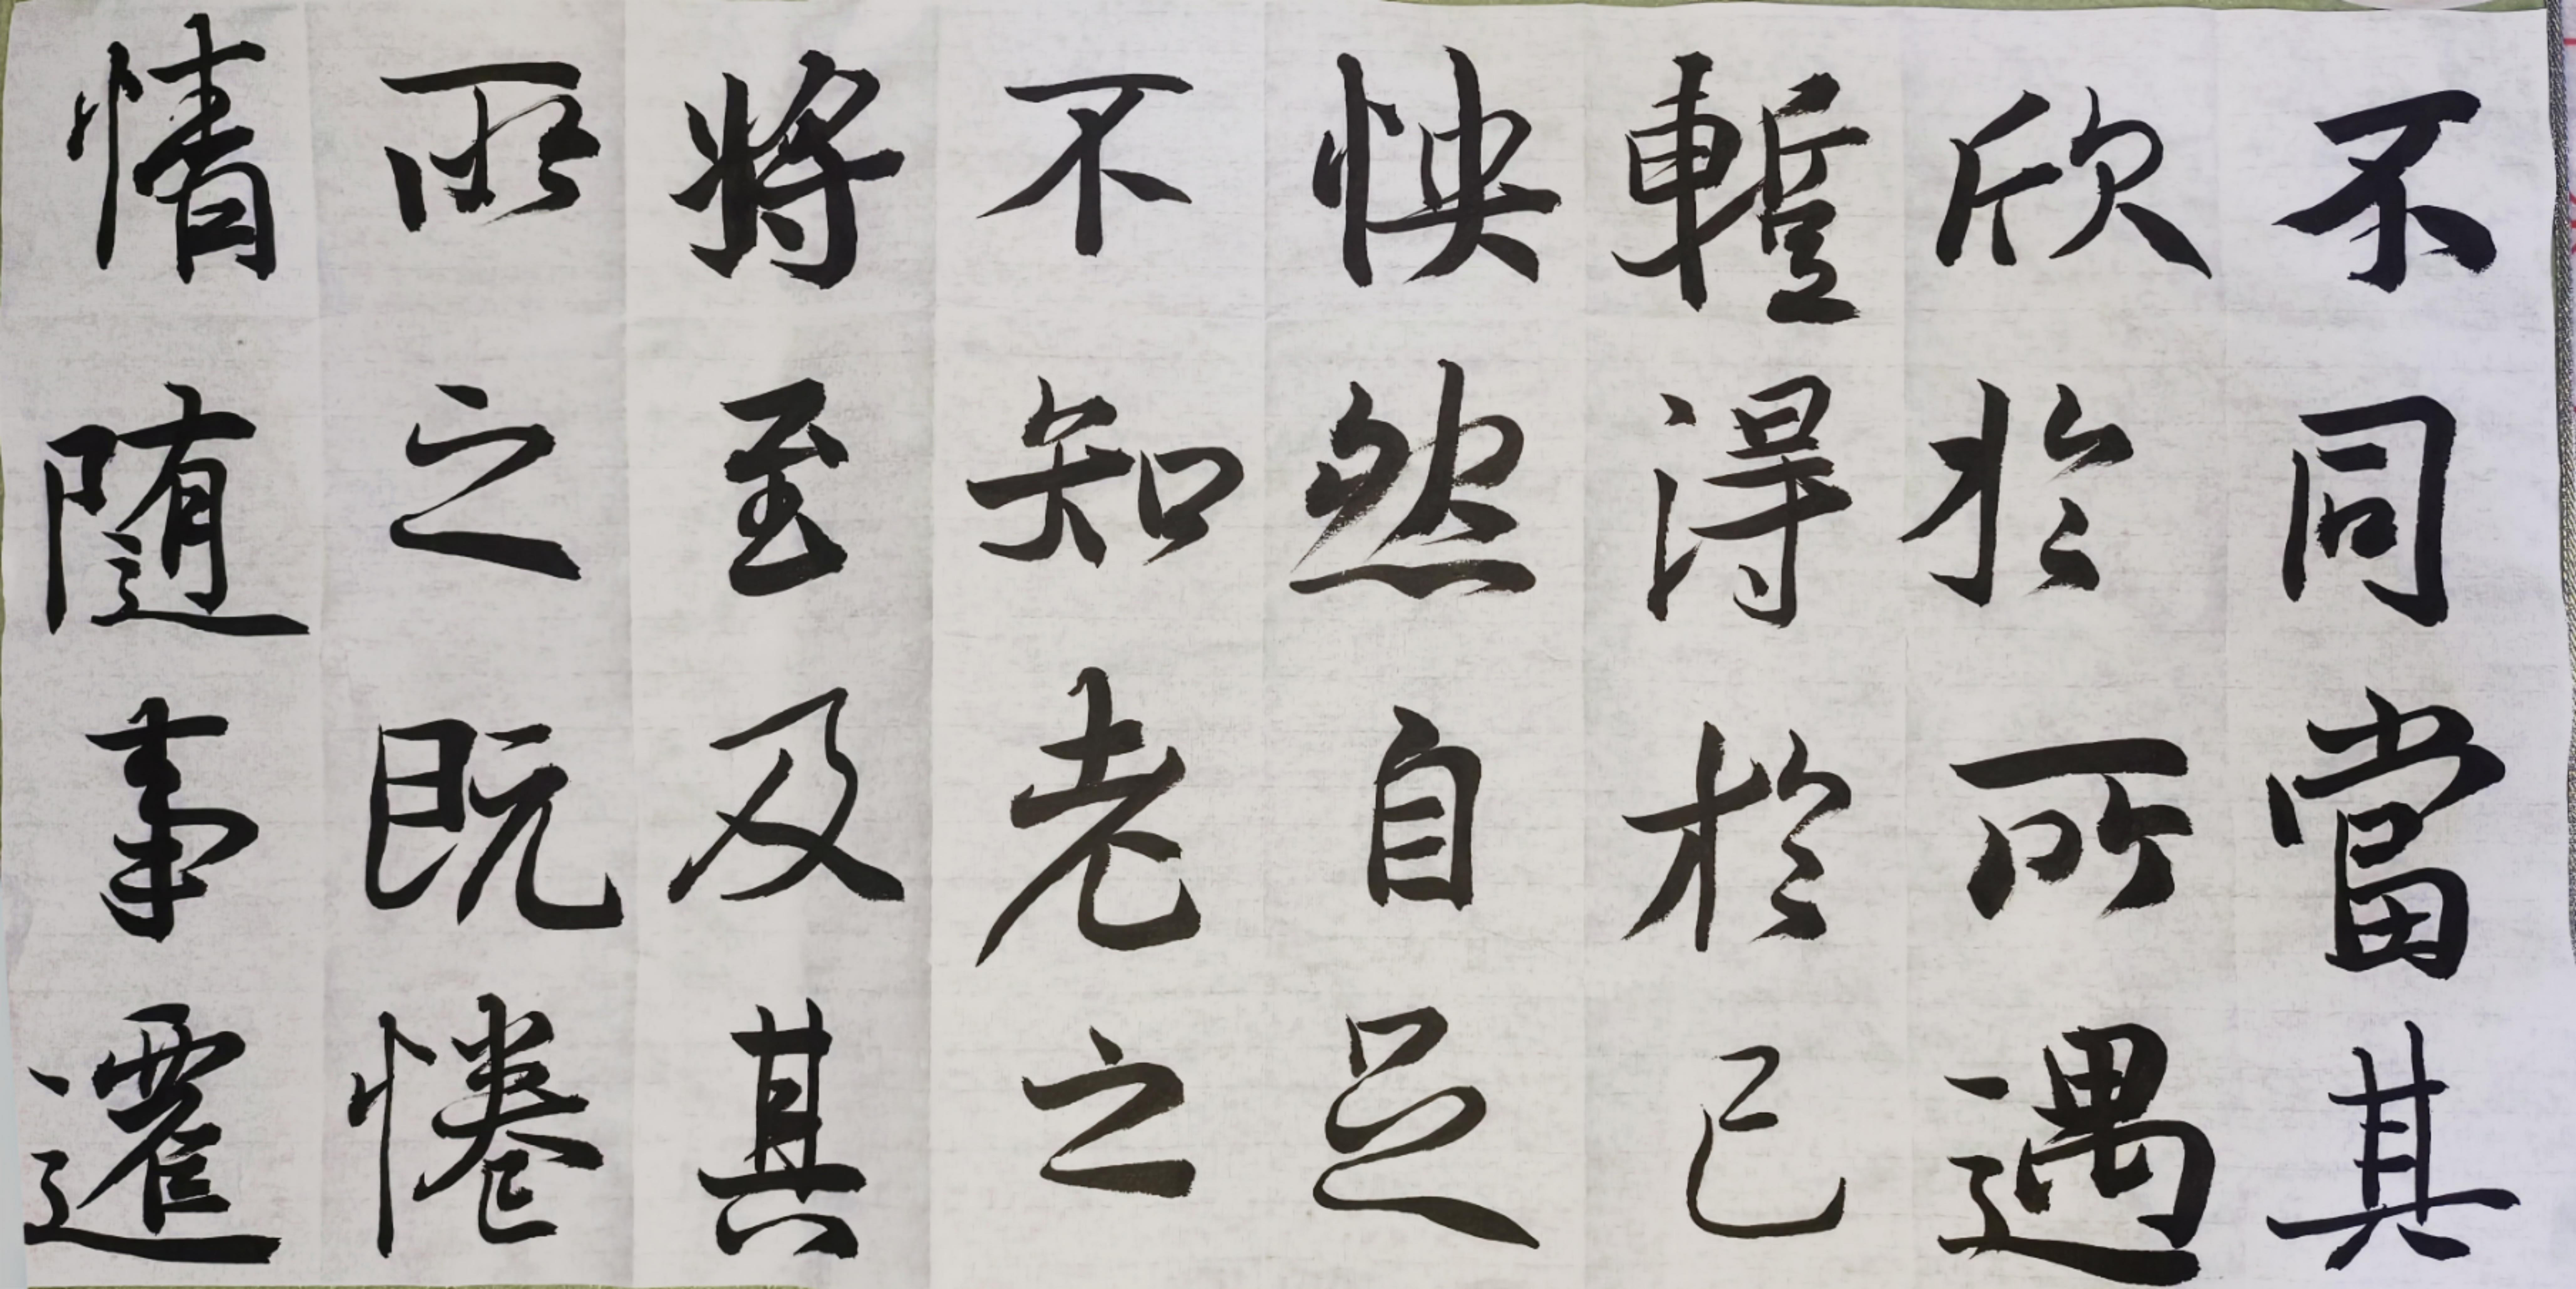 不同當其
欣於所遇
蹔得於己
怏然自足
不知老之
將至及其
所之既惓
情随事遷